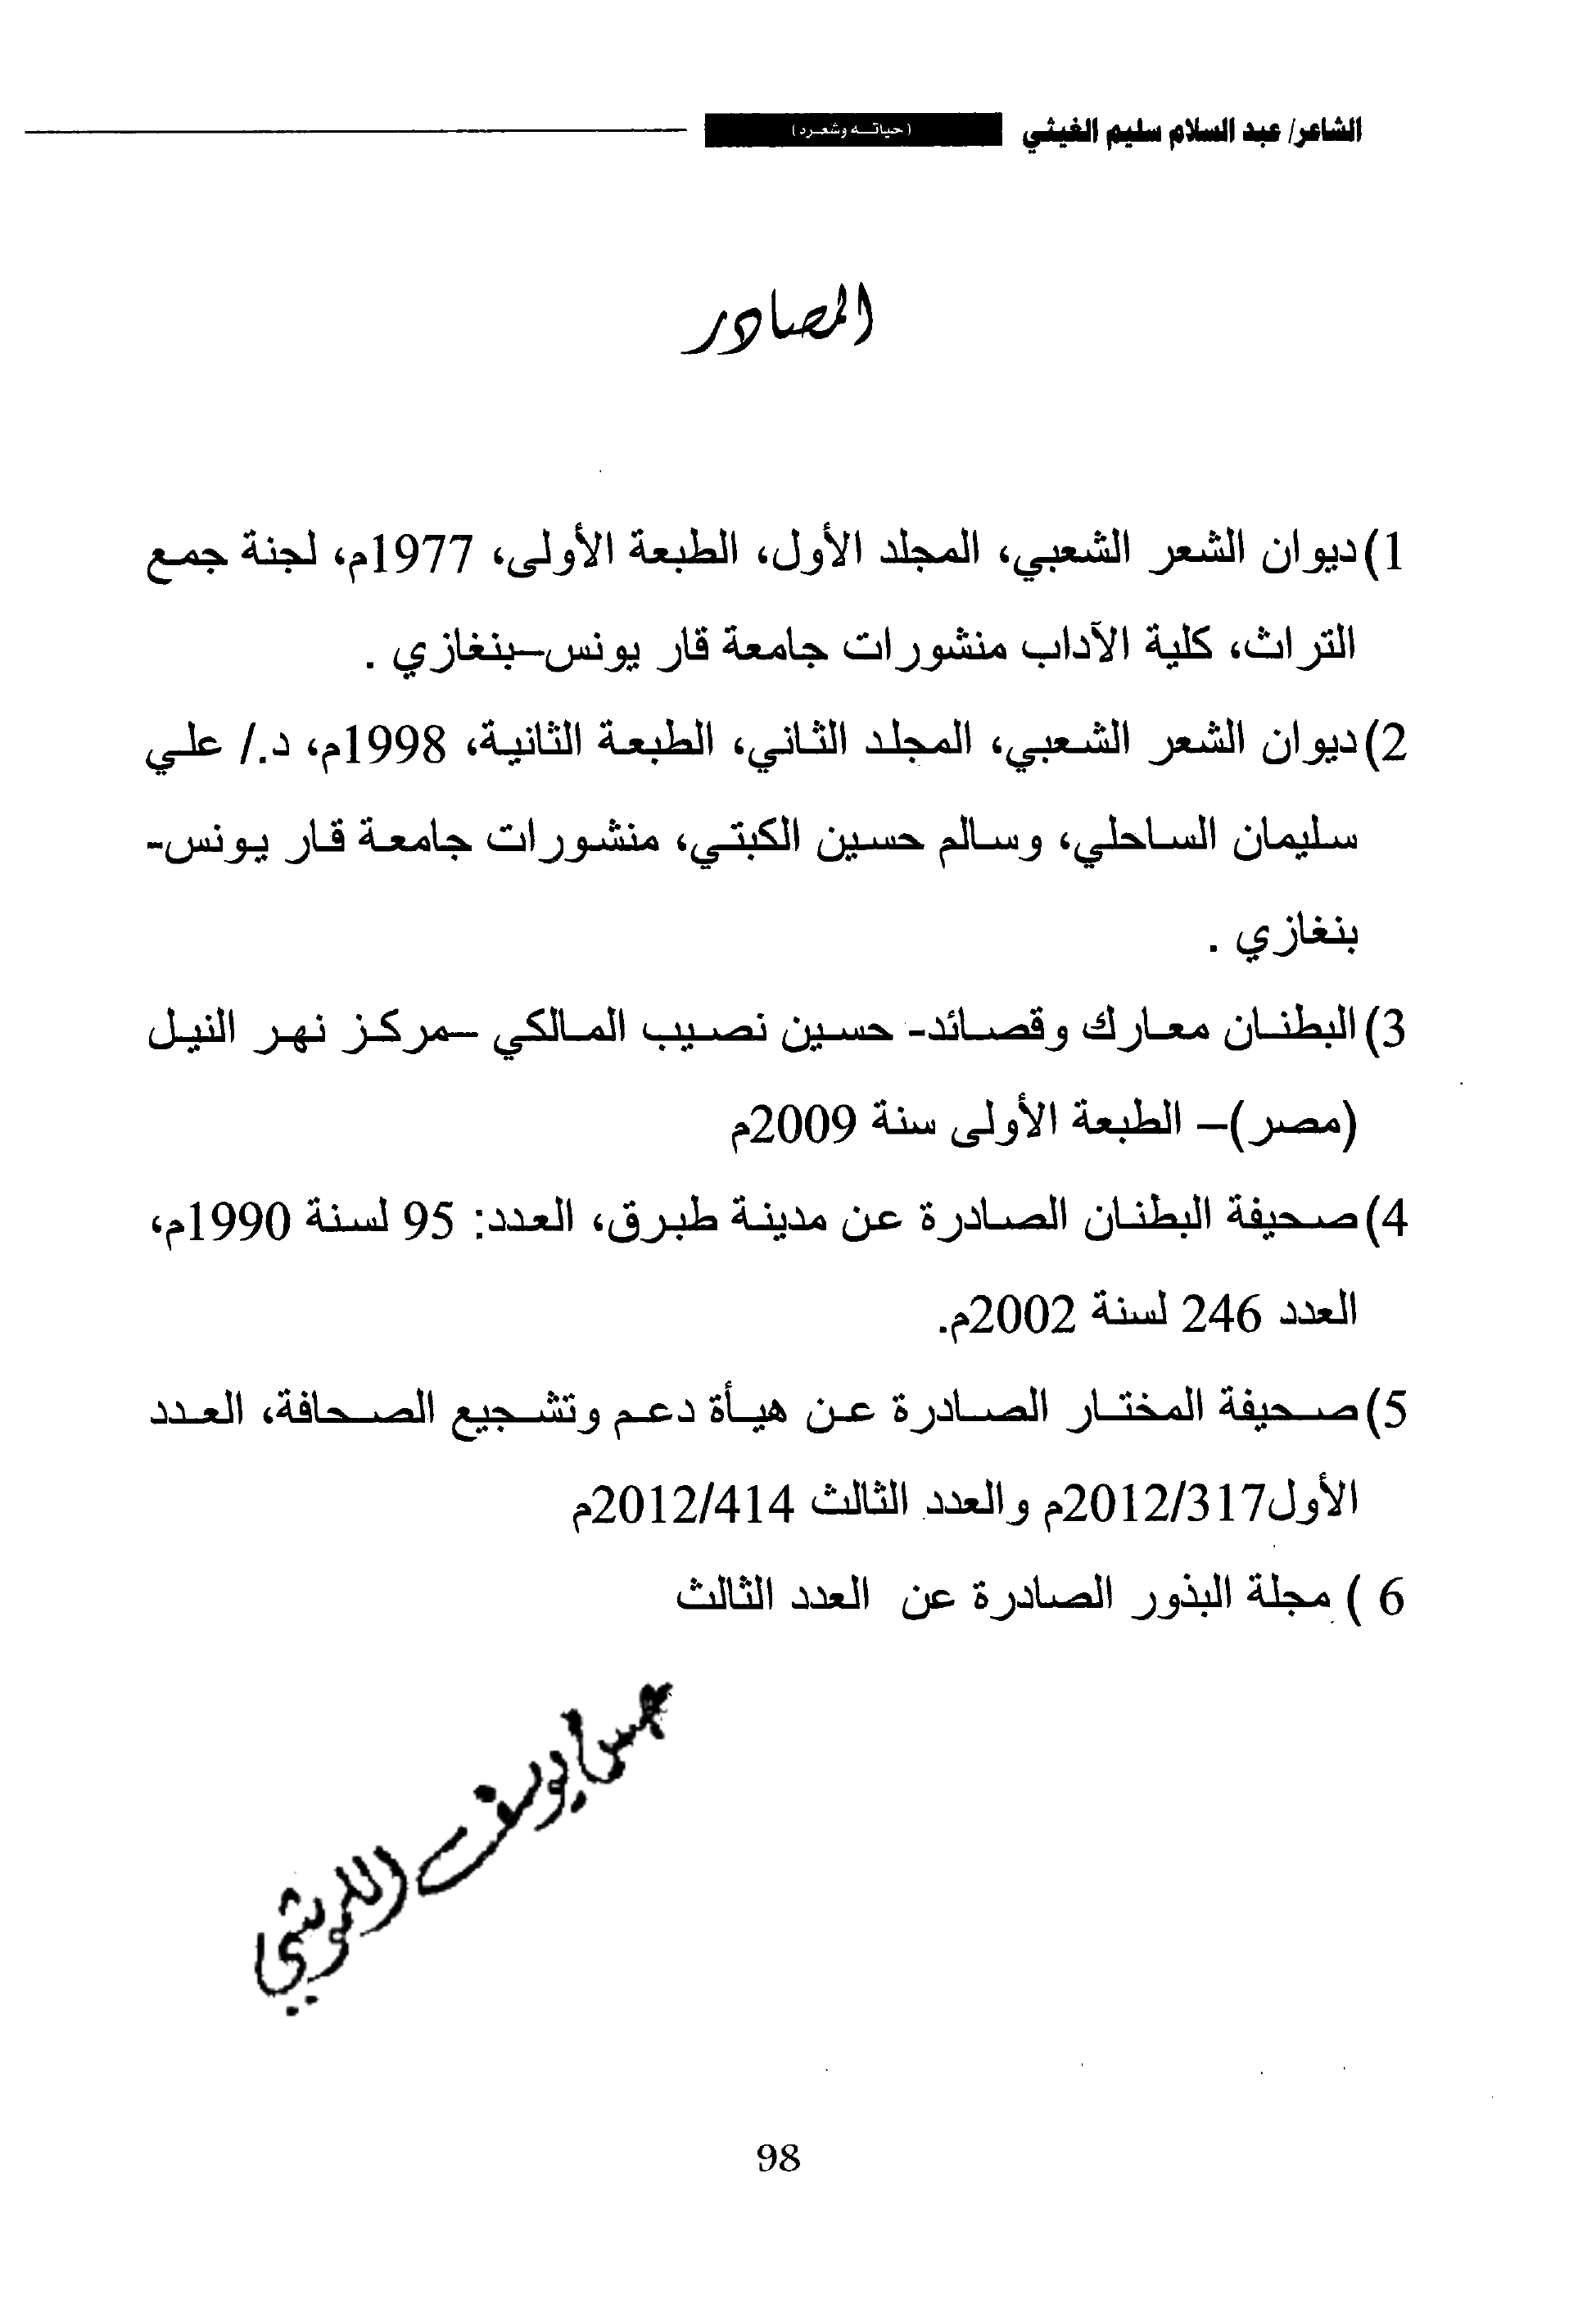 الشاعر/ عبد السلام سليم الغيثي (حياتـه وشعـره)
المصادر
1) ديوان الشعر الشعبي، المجلد الأول، الطبعة الأولى، 1977م، لجنة جمع
التراث، كلية الآداب منشورات جامعة قار يونس–بنغازي .
2) ديوان الشعر الشعبي، المجلد الثاني، الطبعة الثانية، 1998م، د./ علي
سليمان الساحلي، وسالم حسين الكبتي، منشورات جامعة قار يونس-
بنغازي .
3) البطنان معارك وقصائد- حسين نصيب المالكي –مركز نهر النيل
(مصر)– الطبعة الأولى سنة 2009م
4) صحيفة البطنان الصادرة عن مدينة طبرق، العدد: 95 لسنة 1990م،
العدد 246 لسنة 2002م.
5) صحيفة المختار الصادرة عن هيأة دعم وتشجيع الصحافة، العدد
الأول2012/317م والعدد الثالث 2012/414م
6 ) مجلة البذور الصادرة عن العدد الثالث
يوسف
98